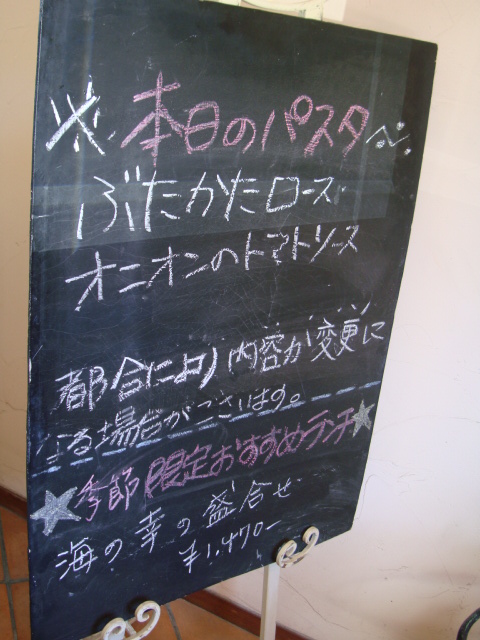 ※本日のパスタ
ぶたかたロース
オニオンのトマトソース
都合により内容が変更に
なる場合がございます。
★季節限定おすすめランチ★
海の幸の盛合せ
¥1,470-